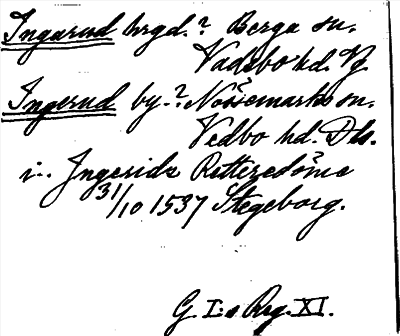 Ingarud hrgd.? Berga sn.
Vadsbo hd. Vg.
Ingerud by.? Nössemarks sn.
Vedbo hd. Dls.
i. Ingeridz Retteredöme
31/10 1537 Stegeborg.
G. I:s Reg. XI.